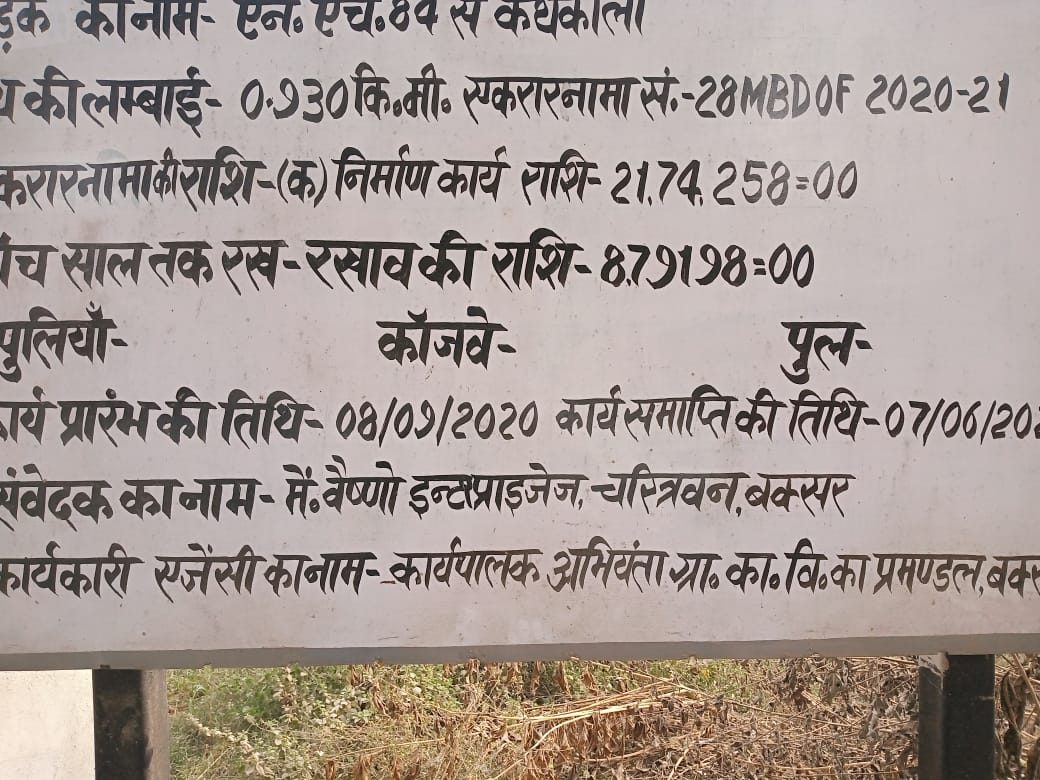 ड़क का नाम- एन. एच.84 से कथकौली
की लम्बाई- 0.930 कि.मी. एकरारनामा सं.-28MBDOF 2020-21
करारनामा की राशि-(क) निर्माण कार्य राशि- 21,74,258=00
ांच साल तक रख-रखाव की राशि- 8,79198=00
पुलियाँ- कॉजवे- पुल-
ार्य प्रारंभ की तिथि- 08/09/2020 कार्य समाप्ति की तिथि-07/06/202
संवेदक का नाम- में. वैष्णो इन्टरप्राइजेज, चरित्रवन, बक्सर
कार्यकारी एजेंसी का नाम- कार्यपालक अभियंता ग्रा. का. वि. का प्रमण्डल, बक्स